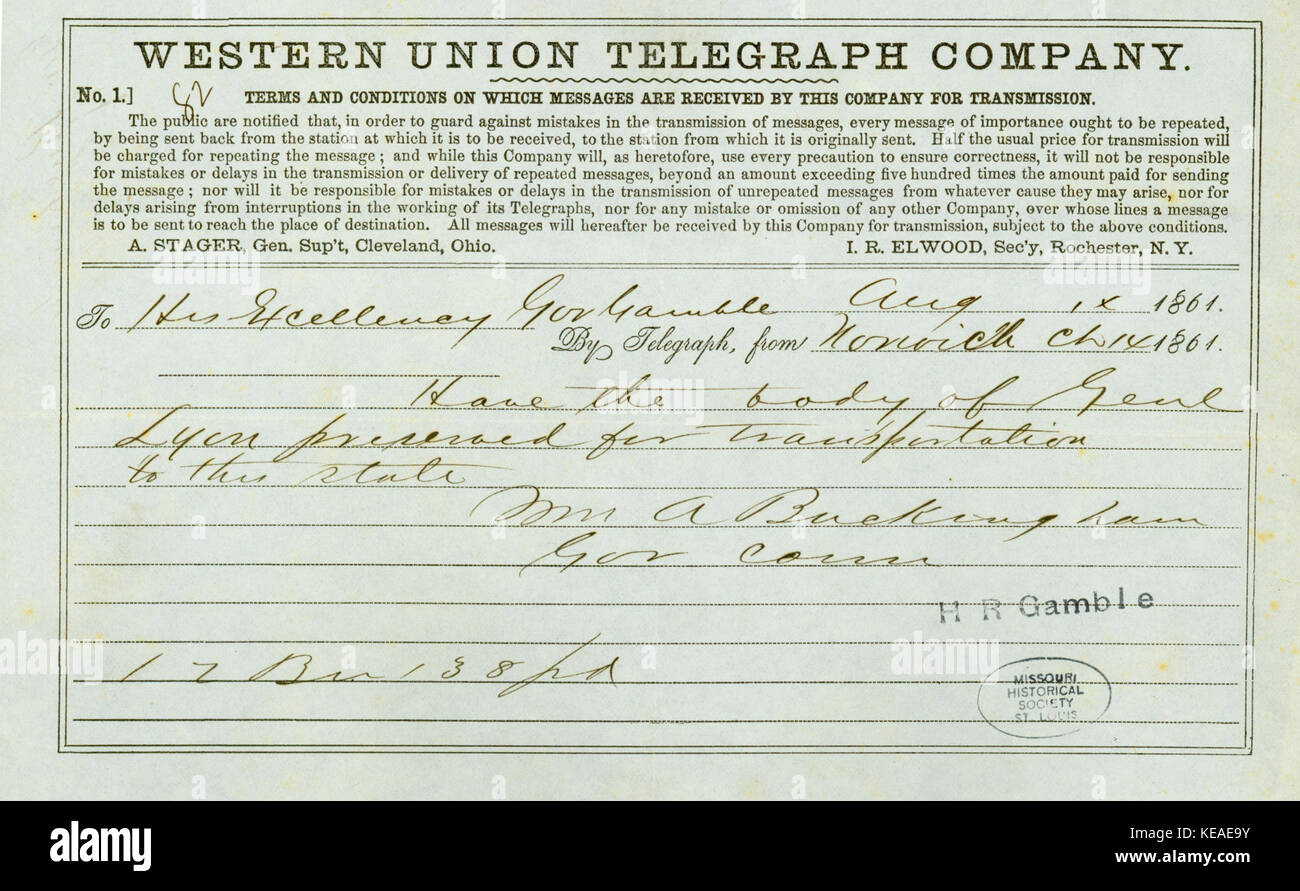 WESTERN UNION TELEGRAPH COMPANY.
No. 1.]
TERMS AND CONDITIONS ON WHICH MESSAGES ARE RECEIVED BY THIS COMPANY FOR TRANSMISSION.
The public are notified that, in order to guard against mistakes in the transmission of messages, every message of importance ought to be repeated,
by being sent back from the station at which it is to be received, to the station from which it is originally sent. Half the usual price for transmission will
be charged for repeating the message; and while this Company will, as heretofore, use every precaution to ensure correctness, it will not be responsible
for mistakes or delays in the transmission or delivery of repeated messages, beyond an amount exceeding five hundred times the amount paid for sending
the message; nor will it be responsible for mistakes or delays in the transmission of unrepeated messages from whatever cause they may arise, nor for
delays arising from interruptions in the working of its Telegraphs, nor for any mistake or omission of any other Company, over whose lines a message
is to be sent to reach the place of destination. All messages will hereafter be received by this Company for transmission, subject to the above conditions.
A. STAGER, Gen. Sup't, Cleveland, Ohio. I. R. ELWOOD, Sec'y, Rochester, N. Y.
To His Excellency Gov Gamble Aug 14 1861.
By Telegraph, from Norwich Ch 14 1861.
Have the body of Genl
Lyon preserved for transportation
to this state
Wm A Buckingham
Gov Conn
H R Gamble
138 pd
MISSOURI
HISTORICAL
SOCIETY
ST. LOUIS
alamy
Image ID: KEAE9Y
www.alamy.com